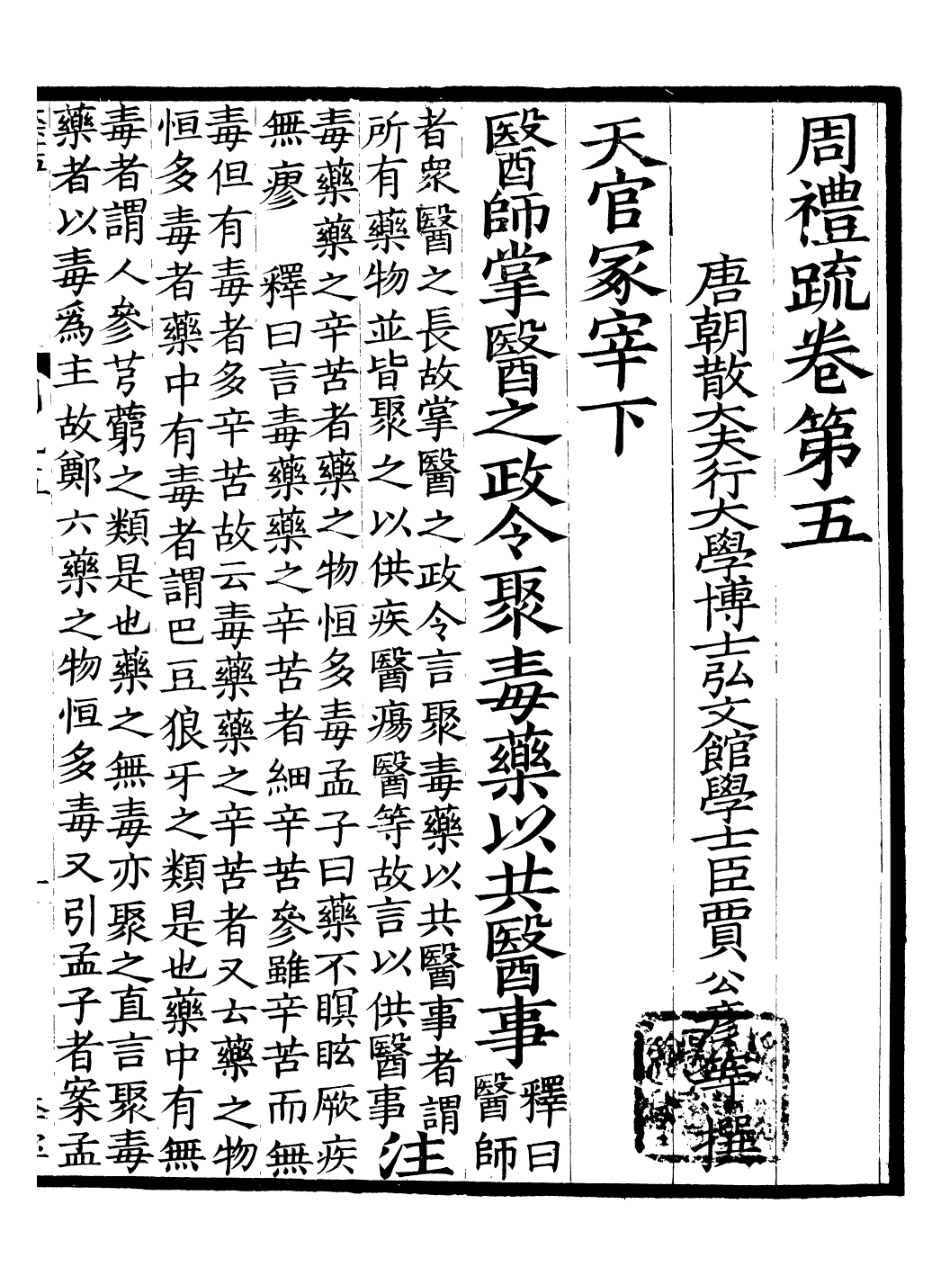 周禮疏卷第五
唐朝散大夫行大學博士弘文館學士臣賈公彦等撰
天官冢宰下
醫師掌醫之政令聚毒藥以共醫事釋曰醫師
者衆醫之長故掌醫之政令言聚毒藥以共醫事者謂
所有藥物並皆聚之以供疾醫瘍醫等故言以供醫事注
毒藥藥之辛苦者藥之物恒多毒孟子曰藥不瞑眩厥疾
無瘳 釋曰言毒藥藥之辛苦者細辛苦參雖辛苦而無
毒但有毒者多辛苦故云毒藥藥之辛苦者又云藥之物
恒多毒者藥中有毒者謂巴豆狼牙之類是也藥中有無
毒者謂人參芎藭之類是也藥之無毒亦聚之直言聚毒
藥者以毒爲主故鄭六藥之物恒多毒又引孟子者案孟